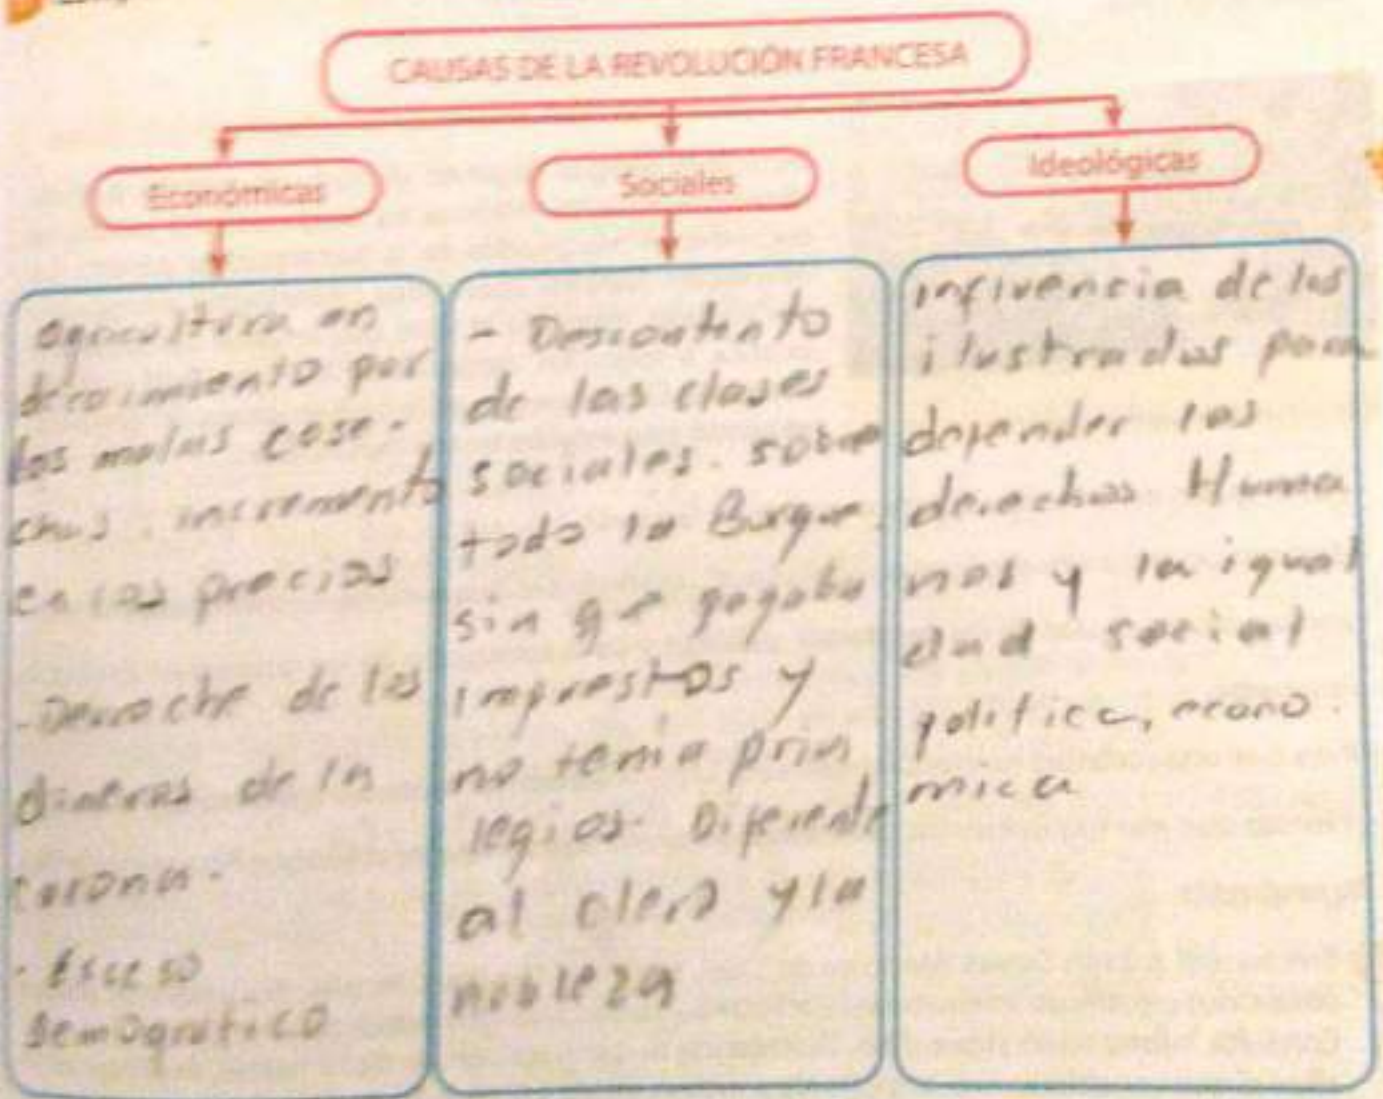 CAUSAS DE LA REVOLUCIÓN FRANCESA
Económicas
Sociales
Ideológicas
agricultura en
decaimiento por
las malas cose-
chas. incremento
en los precios
- Derroche de los
dineros de la
corona.
- Esceso
demografico
- Descontento
de las clases
sociales. sobre
todo la Burgue
sia que pagaba
impuestos y
no tenia privi
legios. Diferente
al clero y la
nobleza
influencia de los
ilustrados para
defender los
derechos Huma
nos y la igual
dad social
politica, econo.
mica